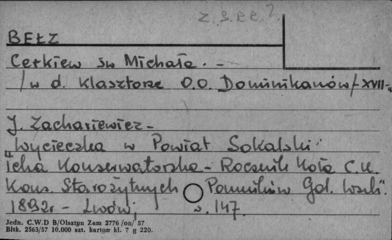 BEŁZ
Cerkiew św Michała. -
/w d. klasztorze O.O. Dominikanów/-XVII-w
J. Zachariewicz -
"Wycieczka w Powiat Sokalski"
Teka Konserwatorska - Rocznik Koła C.K.
Kons. Starożytnych Pomników Gal. Wsch.
1892r - Lwów; s. 147.
Jedn. C.W.D B/Olsztyn Zam 2776/oa/57
Błk. 2563/57 10.000 szt. kartów kl. 7 g 220.